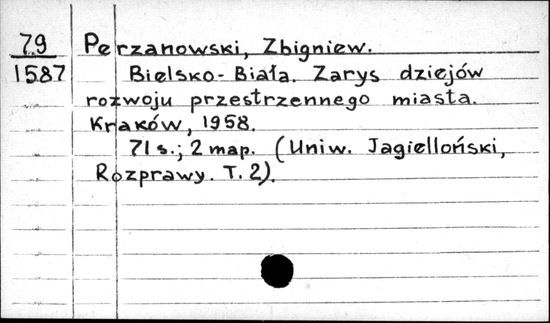 79
1587
Perzanowski, Zbigniew.
Bielsko-Biała. Zarys dziejów
rozwoju przestrzennego miasta.
Kraków, 1958.
71 s.; 2 map. (Uniw. Jagielloński,
Rozprawy. T. 2).